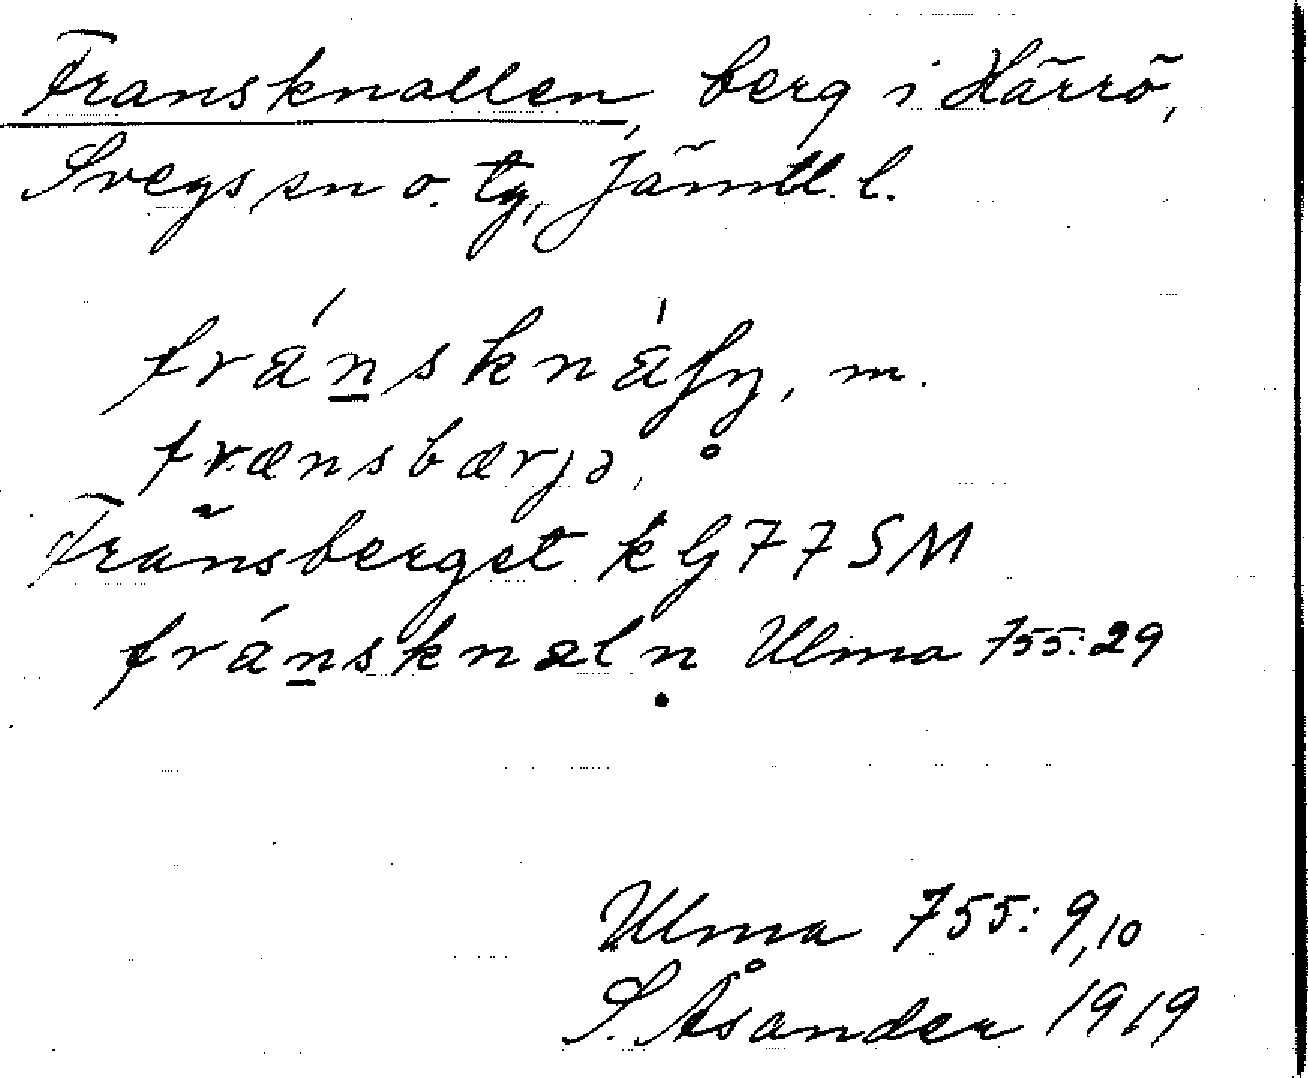 Fransknallen, berg i Härrö,
Svegs sn o. tg, Jämtl. l.
m.
frænsbærjə,
Fränsberget kG77SM
Ulma 755:29
Ulma 755: 9,10
S. Åsander 1919